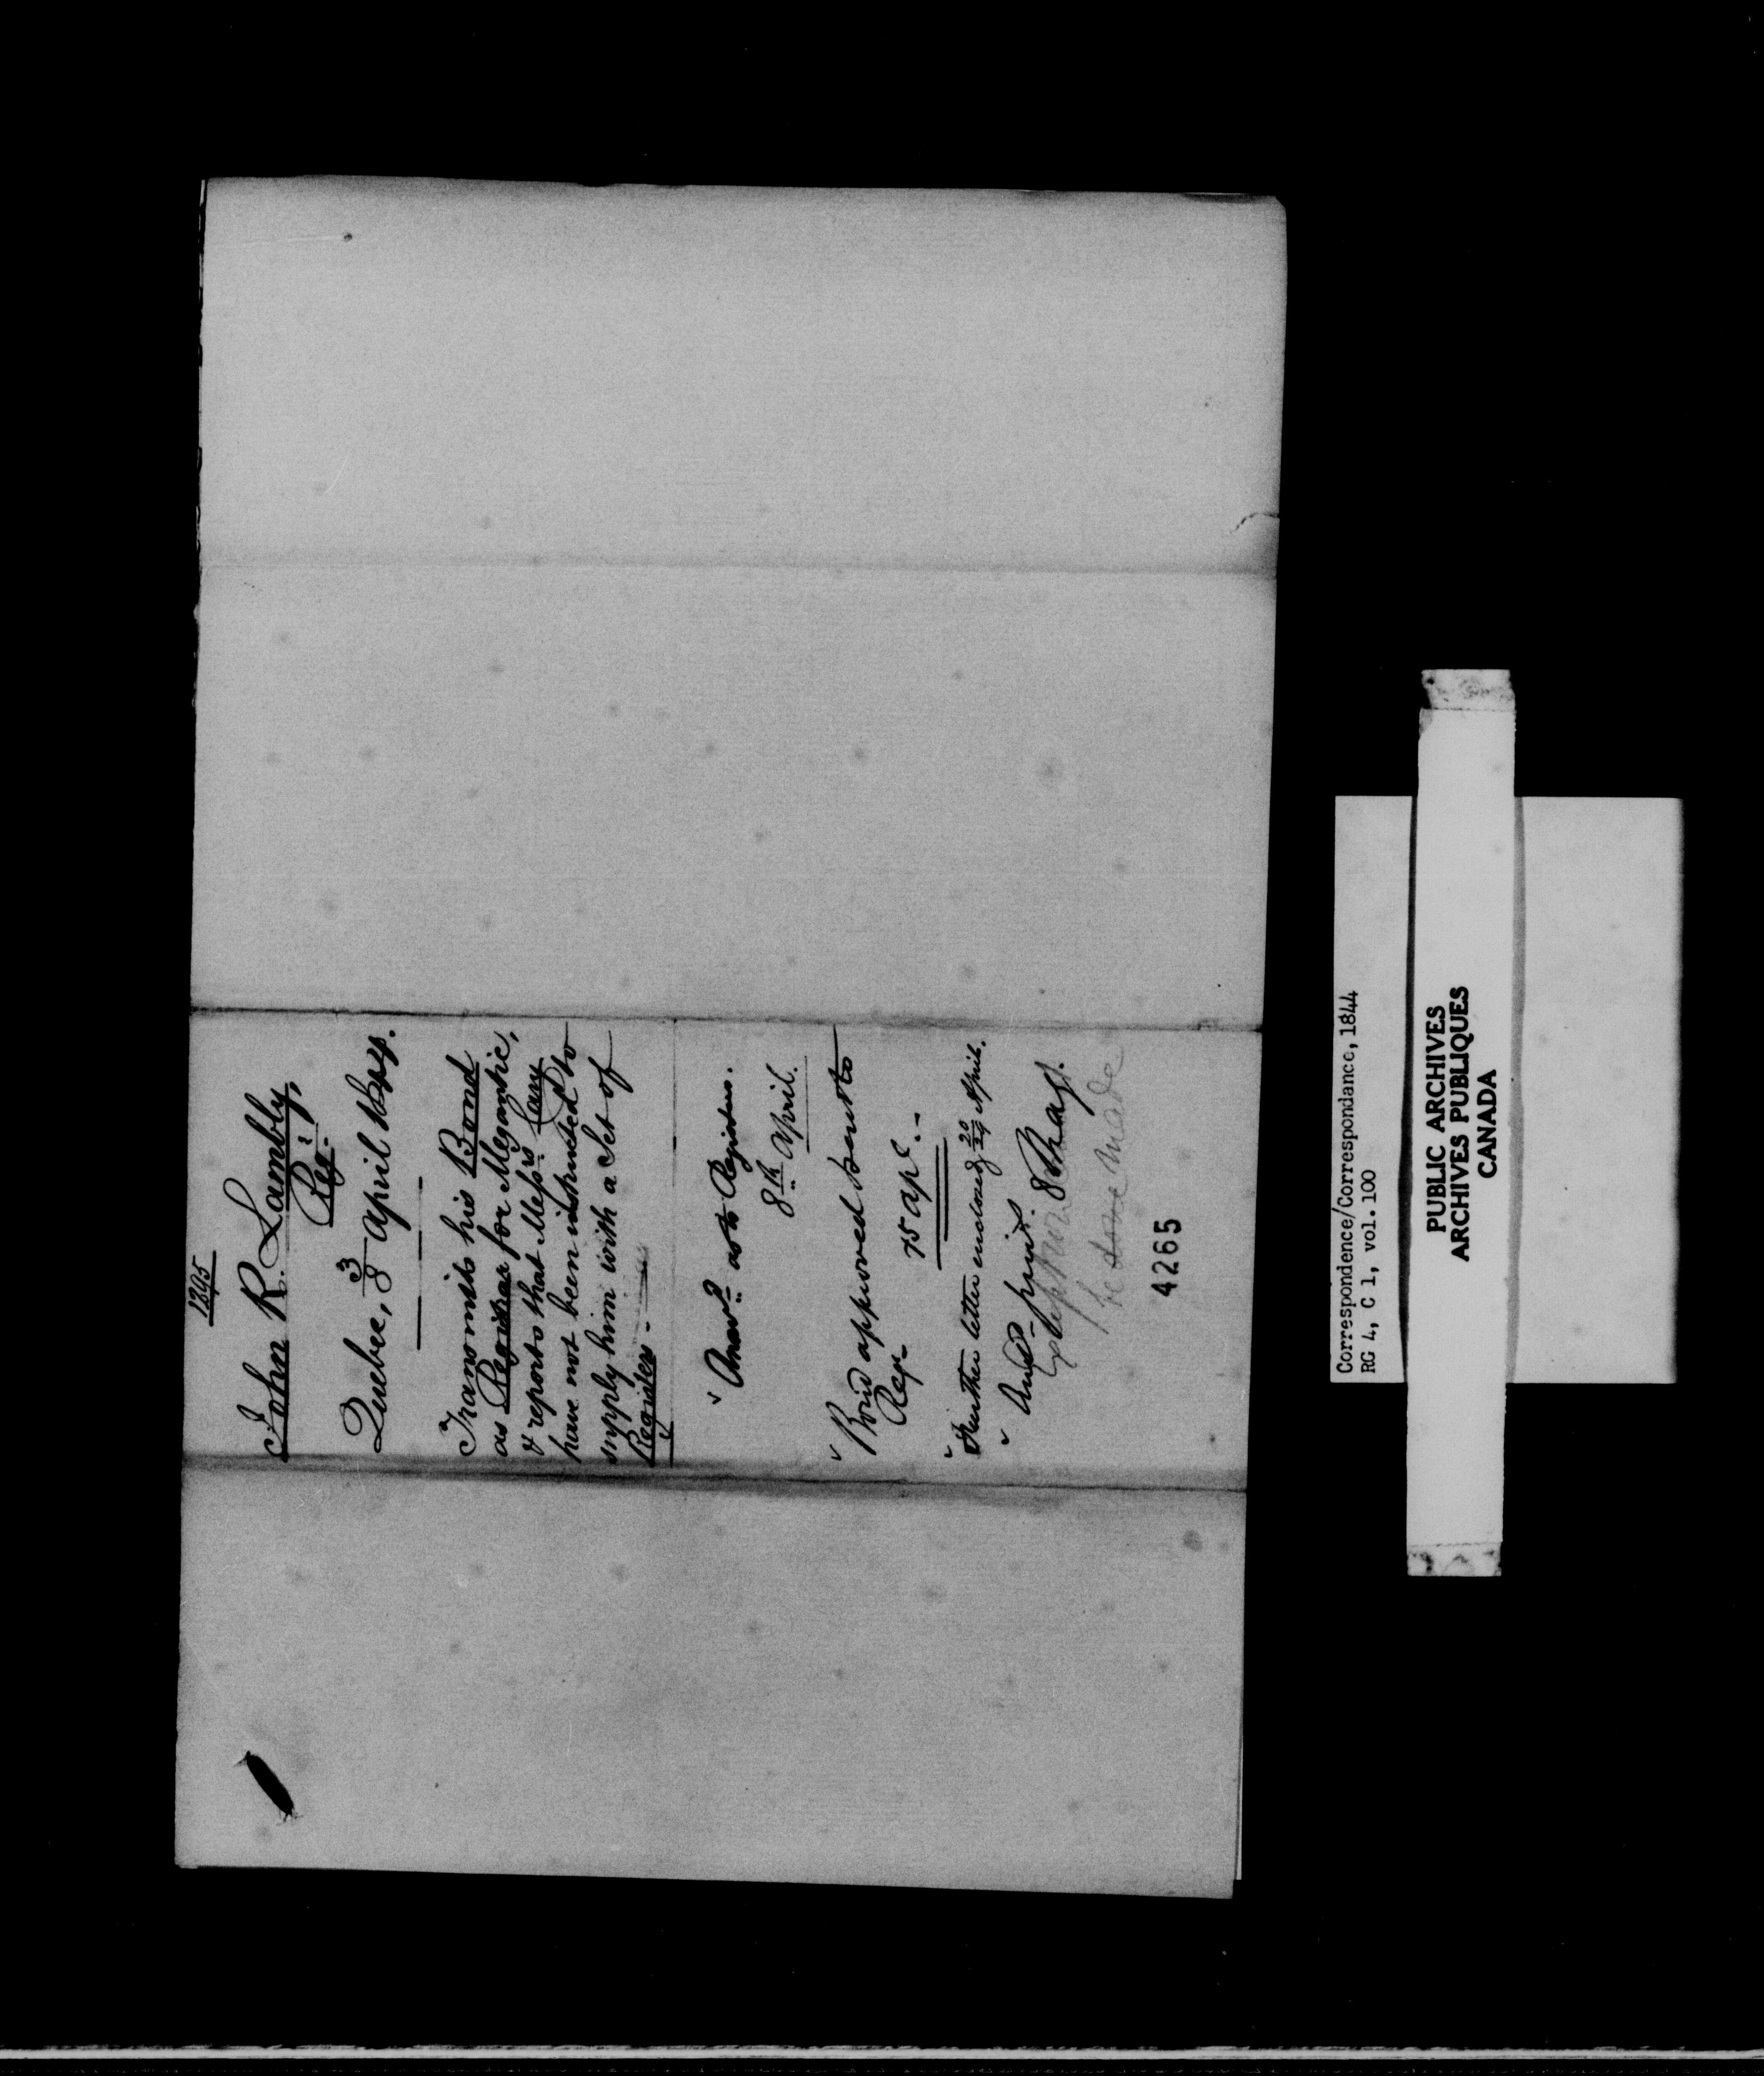 1295
John R. Lambly,
Reg:r
Quebec, 3/8 April 1844.
Transmits his Bond
as Registrar for Megantic,
& reports that Mess:rs Cary
have not been instructed to
supply him with a Set of
Registers.
Answ:d as to Registers.
8th April.
Bond approved & sent to
Reg-
15 Apl.-
Further letter enclosed 20/24 April.
Ansd- 8 May.
be made
4265
Correspondence/Correspondance, 1844
RG 4, C 1, vol.100
PUBLIC ARCHIVES
ARCHIVES PUBLIQUES
CANADA